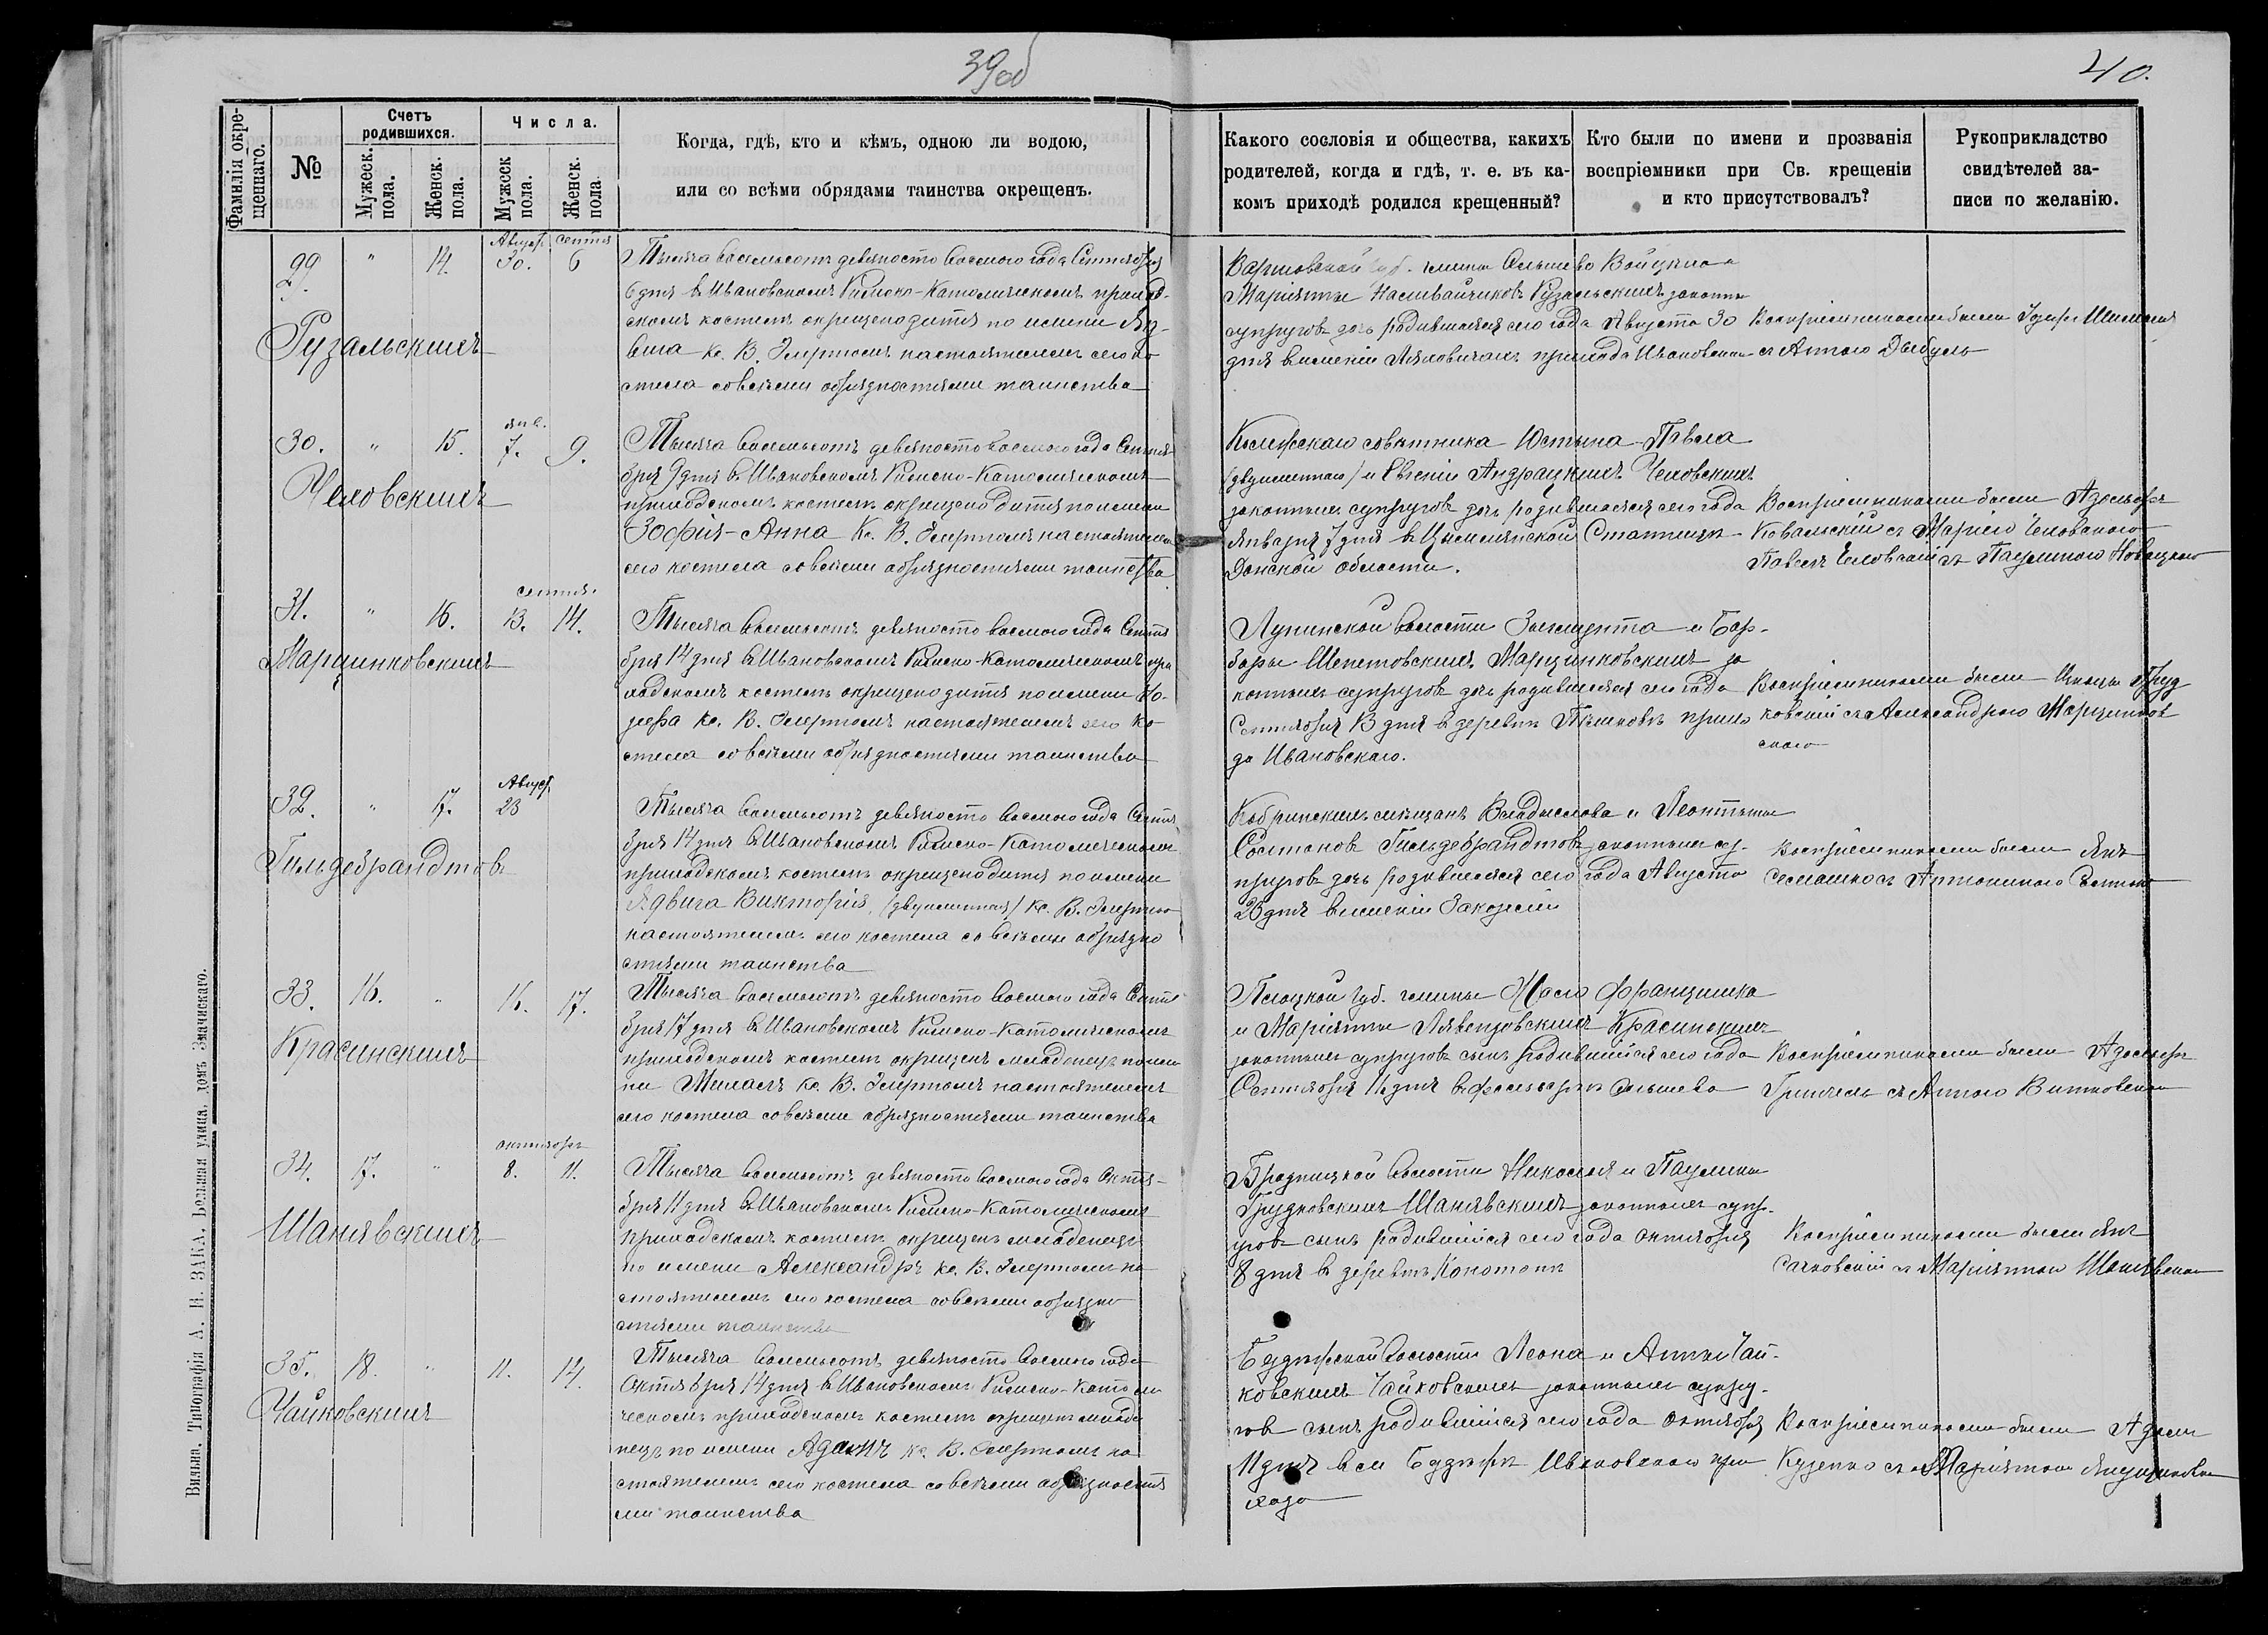 39об
40.
Фамилія окрещеннаго.
№
Счетъ родившихся.
Мужеск. пола.
Женск. пола.
Числа.
Мужеск пола.
Женск. пола
Когда, гдѣ, кто и кѣмъ, одною ли водою,
или со всѣми обрядами таинства окрещенъ.
Какого сословія и общества, какихъ
родителей, когда и гдѣ, т. е. въ ка-
комъ приходѣ родился крещенный?
Кто были по имени и прозванія
воспріемники при Св. крещеніи
и кто присутствовалъ?
Рукоприкладство
свидѣтелей за-
писи по желанію.
29. " 14. Август. 30. сентяб 6
Рузальскихъ
Тысяча восемьсотъ девяносто восьмого года Сентября
6 дня въ Ивановскомъ Римско-Католическомъ приход-
скомъ костелѣ окрещено дитя по имени Яд-
вига Кс. В. настоятелемъ сего ко
стела со всѣми обрядностями таинства
Варшовской губ. гмины Ольшево Войцѣха и
Маріянны Рузальскихъ законны
супруговъ дочь родившаяся сего года Августа 30
дня въ имѣніи Ляховичахъ прихода Ивановскаго
Воспріемниками были Іозефъ
съ Анною
30. " 15. янв. 7. 9.
Чеховскихъ
Тысяча восемьсотъ девяносто восьмого года Сентя-
бря 9 дня въ Ивановскомъ Римско-Католическомъ
приходскомъ костелѣ окрещено дитя по имени
Зофія-Анна Кс. В. настоятелемъ
сего костела со всѣми обрядностями таинства
совѣтника Юстына-Павла
(двуименнаго) и Евгеніи Чеховскихъ
законныхъ супруговъ дочь родившаяся сего года
Января 7 дня въ Цымлянской Станицѣ
Донской области.
Воспріемниками были Адольфъ
Ковальскій съ Маріею
Павелъ съ Паулиною
31. " 16. сентяб. 13. 14.
Марцинковскихъ
Тысяча восемьсотъ девяносто восьмого года Сентя
бря 14 дня въ Ивановскомъ Римско-Католическомъ при
ходскомъ костелѣ окрещено дитя по имени Іо-
зефа Кс. В. настоятелемъ сего ко
стела со всѣми обрядностями таинства
Лунинской волости Зыгмунта и Бар-
бары Шепетовскихъ Марцинковскихъ за
конныхъ супруговъ дочь родившаяся сего года
Сентября 13 дня въ деревнѣ прихо
да Ивановскаго.
Воспріемниками были Игнацы Груд
ковскій съ Александрою Марцинков
скою
32. " 17. Август. 23
Гильдебрандтовъ
Тысяча восемьсотъ девяносто восьмого года Сентя
бря 14 дня въ Ивановскомъ Римско-Католическомъ
приходскомъ костелѣ окрещено дитя по имени
Ядвига Викторія (двуименная) Кс. В.
настоятелемъ сего костела со всѣми обрядно
стями таинства
Кобринскихъ мѣщанъ Владыслова и Леонтыны
Гильдебрандтовъ законныхъ су-
пруговъ дочь родившаяся сего года Августа
23 дня въ имѣніи
Воспріемниками были Янъ
съ Антониною
33. 16. " 16. 17.
Красинскихъ
Тысяча восемьсотъ девяносто восьмого года Сентя
бря 17 дня въ Ивановскомъ Римско-Католическомъ
приходскомъ костелѣ окрещенъ младенецъ по име
ни Михалъ Кс. В. настоятелемъ
сего костела со всѣми обрядностями таинства
Плоцкой губ. гмины Францишка
и Маріянны Красинскихъ
законныхъ супруговъ сынъ родившійся сего года
Сентября 16 дня въ фольваркѣ Ольшево
Воспріемниками были Адольфъ
съ Анною Витковскою
34. 17. " октября 8. 11.
Шанявскихъ
Тысяча восемьсотъ девяносто восьмого года Октя-
бря 11 дня въ Ивановскомъ Римско-Католическомъ
приходскомъ костелѣ окрещенъ младенецъ
по имени Александръ Кс. В. на
стоятелемъ сего костела со всѣми обрядно
стями таинства
Бродницкой волости Николая и Паулины
Грудковскихъ Шанявскихъ законныхъ супр-
уговъ сынъ родившійся сего года октября
8 дня въ деревнѣ
Воспріемниками были Янъ
съ Маріянною Шанявскою
35. 18. " 11. 14.
Чайковскихъ
Тысяча восемьсотъ девяносто восьмого года
Октября 14 дня въ Ивановскомъ Римско-Католи
ческомъ приходскомъ костелѣ окрещенъ младе
нецъ по имени Адамъ Кс. В. на
стоятелемъ сего костела со всѣми обрядностя
ми таинства
волости Леона и Анны Чай-
ковскихъ Чайковскихъ законныхъ супру-
говъ сынъ родившійся сего года октября
11 дня въ им Ивановскаго при
хода
Воспріемниками были Адамъ
съ Маріянною
Вильна. Типографія А. Н. ЗАКА, Большая улица, домъ Змачискаго.